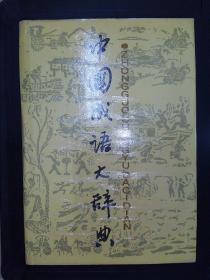 中國成语大辞典
ZHONGGUO CHENGYU DACIDIAN